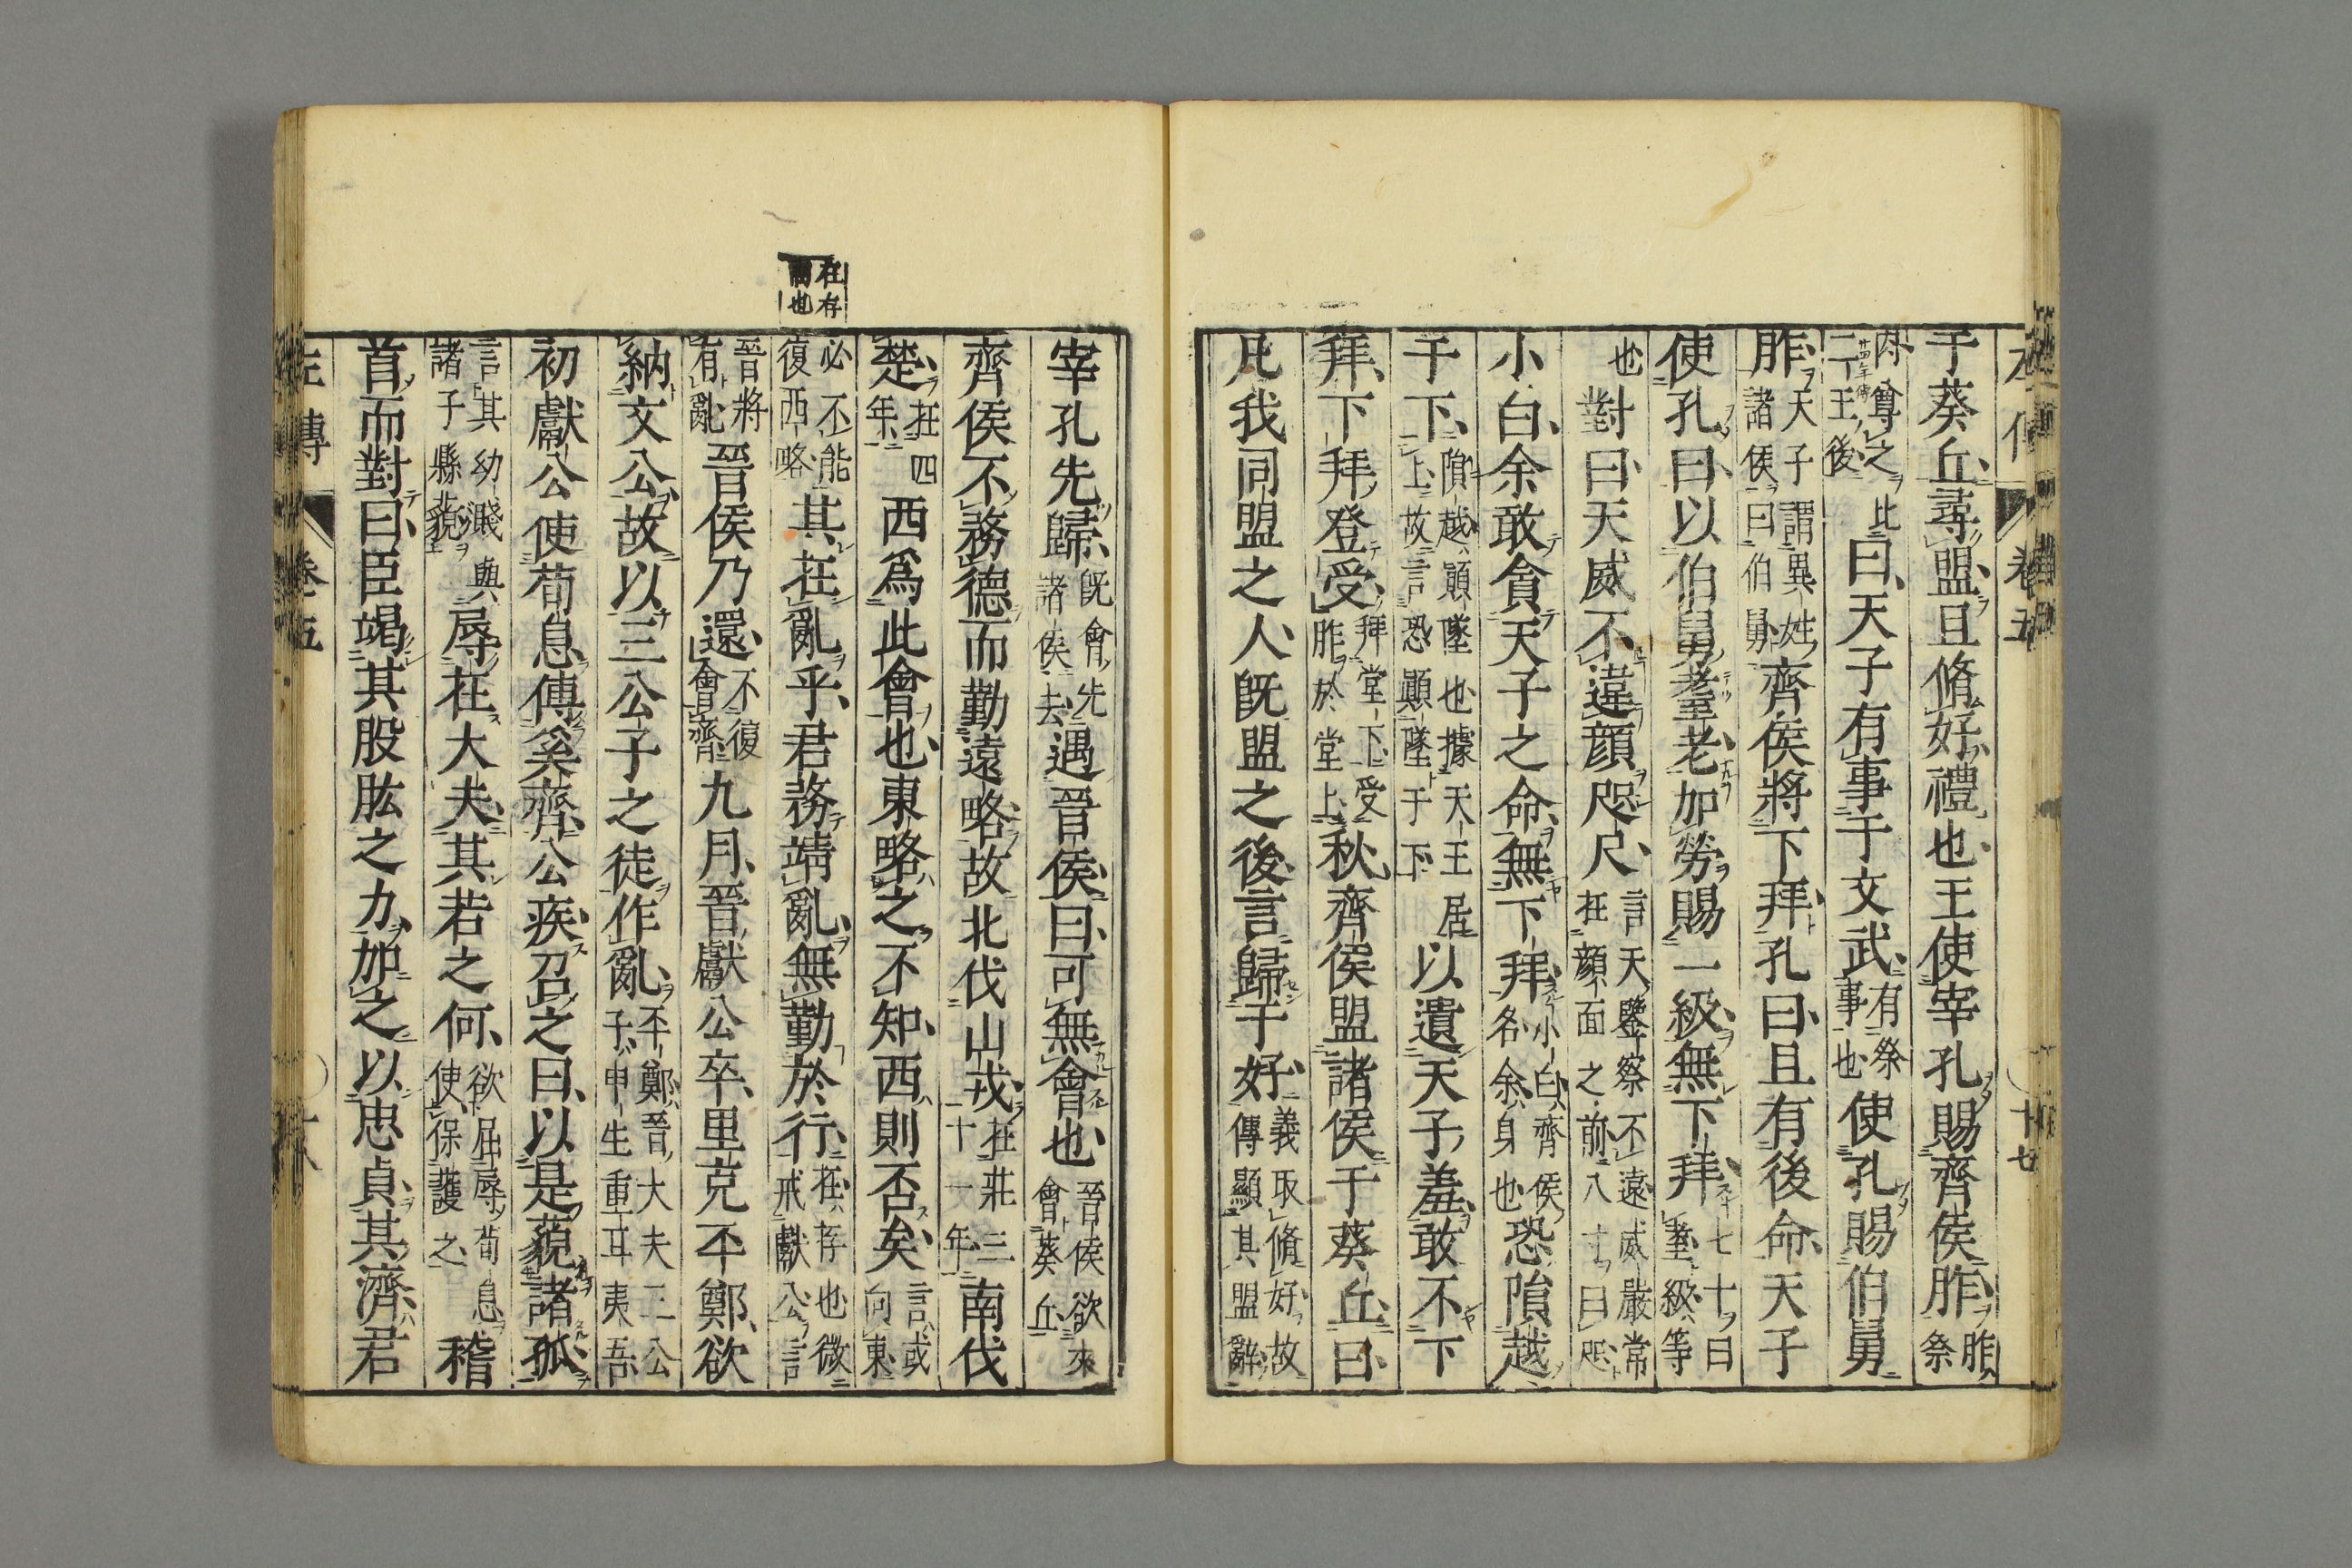 左傳 卷五 十七
于葵丘尋盟且脩好禮也王使宰孔賜齊侯胙胙祭
肉尊之比二王後曰天子有事于文武有祭事也使孔賜伯舅
胙天子謂異姓諸侯曰伯舅齊侯將下拜孔曰且有後命天子
使孔曰以伯舅耋老加勞賜一級無下拜七十曰耋級等
也對曰天威不違顏咫尺言天鑒察不遠威嚴常在顏面之前八寸曰咫
小白余敢貪天子之命無下拜小白齊侯名余身也恐隕越
于下隕越顛墜也據天王居上故言恐顛墜于下以遺天子羞敢不下
拜下拜登受拜堂下受胙於堂上秋齊侯盟諸侯于葵丘曰
凡我同盟之人既盟之後言歸于好義取脩好故傳顯其盟辭
宰孔先歸既會先諸侯去遇晉侯曰可無會也晉侯欲來會葵丘
齊侯不務德而勤遠略故北伐山戎在莊三十一年南伐
楚在四年西爲此會也東略之不知西則否矣言或向東
必不能復西略其在亂乎君務靖亂無勤於行在存也微戒獻公言
晉將有亂晉侯乃還不復會齊九月晉獻公卒里克丕鄭欲
納文公故以三公子之徒作亂丕鄭晉大夫三公子申生重耳夷吾
初獻公使荀息傅奚齊公疾召之曰以是藐諸孤
言其幼賤與諸子縣藐辱在大夫其若之何欲屈辱荀息使保護之稽
首而對曰臣竭其股肱之力加之以忠貞其濟君
左傳 卷五
在存
也